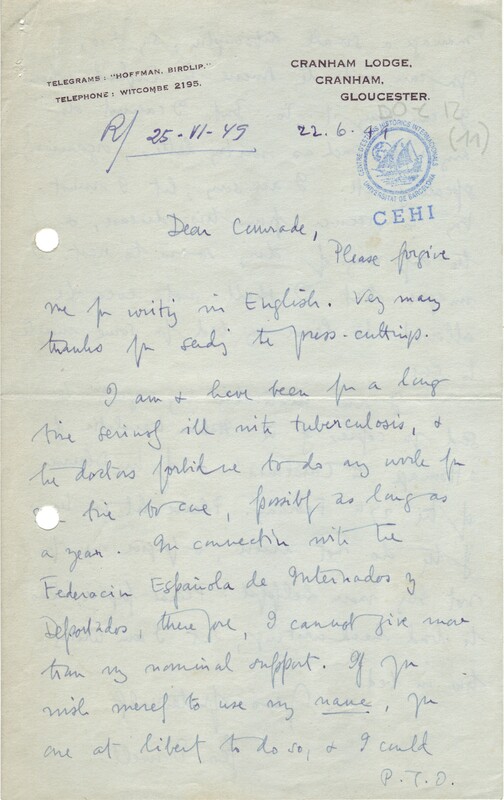 TELEGRAMS: "HOFFMAN, BIRDLIP."
TELEPHONE: WITCOMBE 2195.
CRANHAM LODGE,
CRANHAM,
GLOUCESTER.
R/ 25-VI-49
22.6.49
DO-C.12
(11)
CENTRE D'ESTUDIS HISTÒRICS INTERNACIONALS
UNIVERSITAT DE BARCELONA
CEHI
Dear Comrade,
Please forgive
me for writing in English. Very many
thanks for sending the press-cuttings.
I am & have been for a long
time seriously ill with tuberculosis, &
the doctors forbid me to do any work for
some time to come, possibly as long as
a year. In connection with the
Federación Española de Internados y
Deportados, therefore, I cannot give more
than my nominal support. If you
wish merely to use my name, you
are at liberty to do so, & I could
P.T.O.